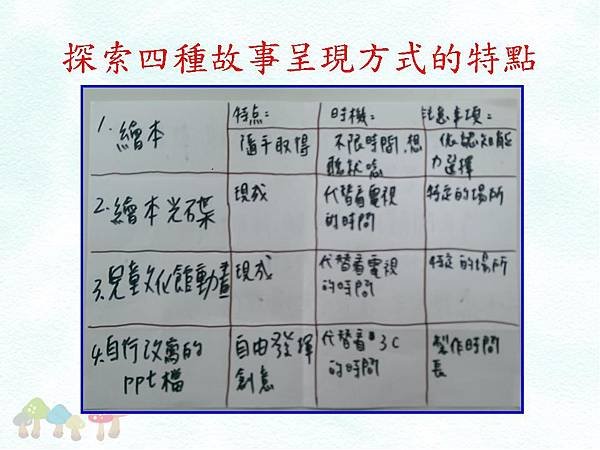 探索四種故事呈現方式的特點
特点： 时機： 注意事項：
1. 繪本 隨手取得 不限時間，想 依認知能
聽就唸 力選擇
2. 繪本光碟 現成 代替看電視 特定的場所
的時間
3. 兒童文化館動畫 現成 代替看電視 特定的場所
的時間
4. 自行改寫的 自由發揮 代替看 3C 製作時間
ppt檔 創意 的時間 長